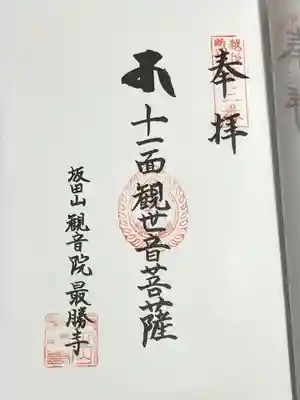 奉拝
十一面観世音菩薩
坂田山観音院最勝寺